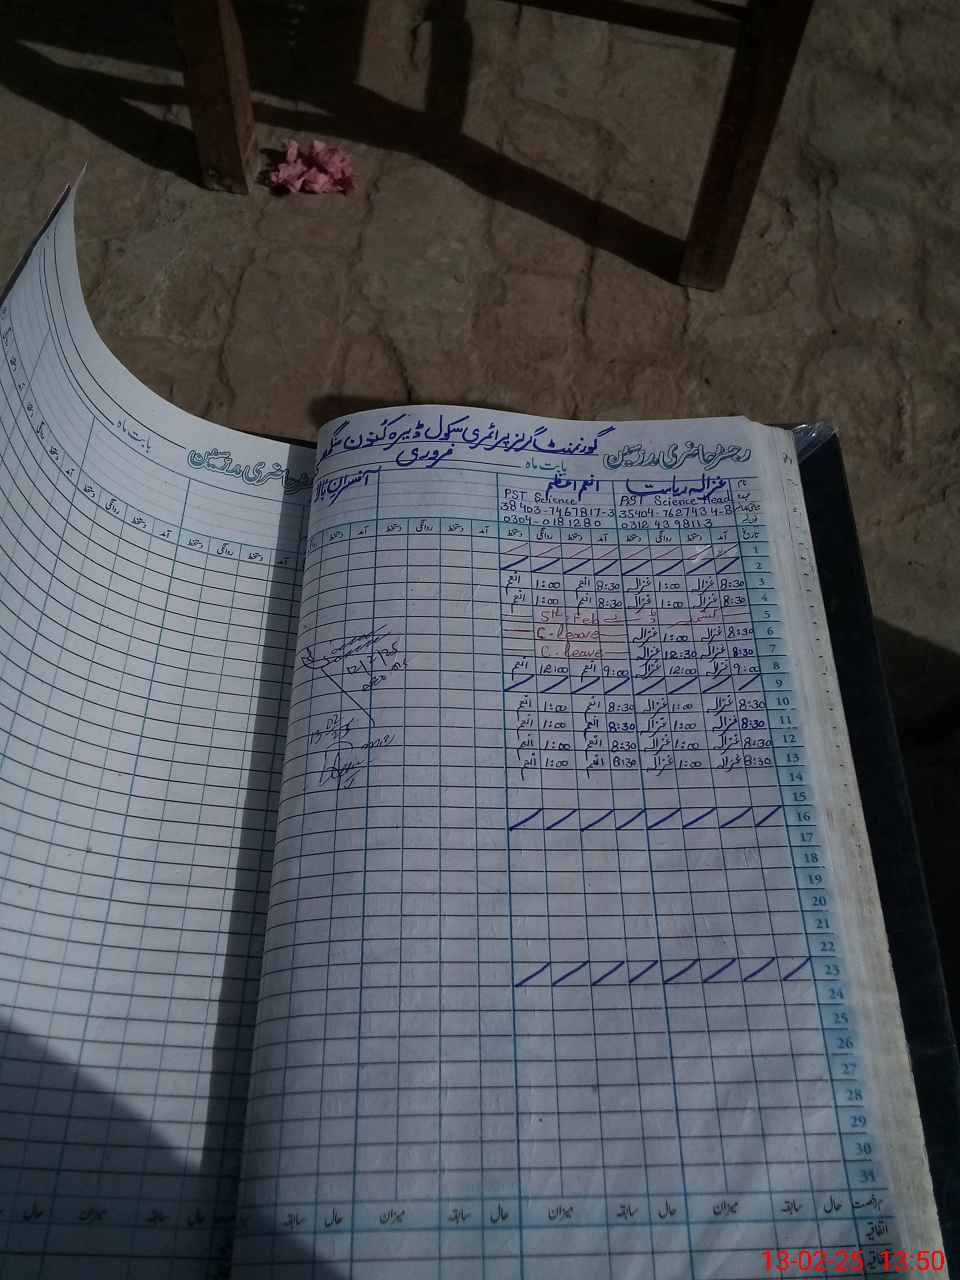 گورنمنٹ گرلز پرائمری سکول ڈیرہ
رجسٹر حاضری مدرسین
بابت ماہ فروری
افسران بالا
نام غزالہ ریاست انعم اعظم
عہدہ PST Science Head PST Science
35404-7627434-8 38403-7467817-3
0312 43 98113 0304-0181280
تاریخ آمد دستخط روانگی دستخط آمد دستخط روانگی دستخط آمد دستخط روانگی دستخط آمد دستخط
1
2
3 8:30 غزالہ 1:00 غزالہ 8:30 انعم 1:00 انعم
4 8:30 غزالہ 1:00 غزالہ 8:30 انعم 1:00 انعم
5 کشمیر ڈے 5th Feb
6 8:30 غزالہ 1:00 غزالہ C-leave
7 8:30 غزالہ 12:30 غزالہ C-leave
8 9:00 غزالہ 12:00 غزالہ 9:00 انعم 12:00 انعم
9
10 8:30 غزالہ 1:00 غزالہ 8:30 انعم 1:00 انعم
11 8:30 غزالہ 1:00 غزالہ 8:30 انعم 1:00 انعم
12 8:30 غزالہ 1:00 غزالہ 8:30 انعم 1:00 انعم
13 8:30 غزالہ 1:00 غزالہ 8:30 انعم 1:00 انعم
14
15
16
17
18
19
20
21
22
23
24
25
26
27
28
29
30
31
رخصت حال سابقہ میزان حال سابقہ میزان حال سابقہ میزان حال سابقہ
اتفاقیہ
رجسٹر حاضری مدرسین
بابت ماہ
آمد دستخط روانگی دستخط آمد دستخط روانگی دستخط
سابقہ میزان حال
13-02-25 13:50